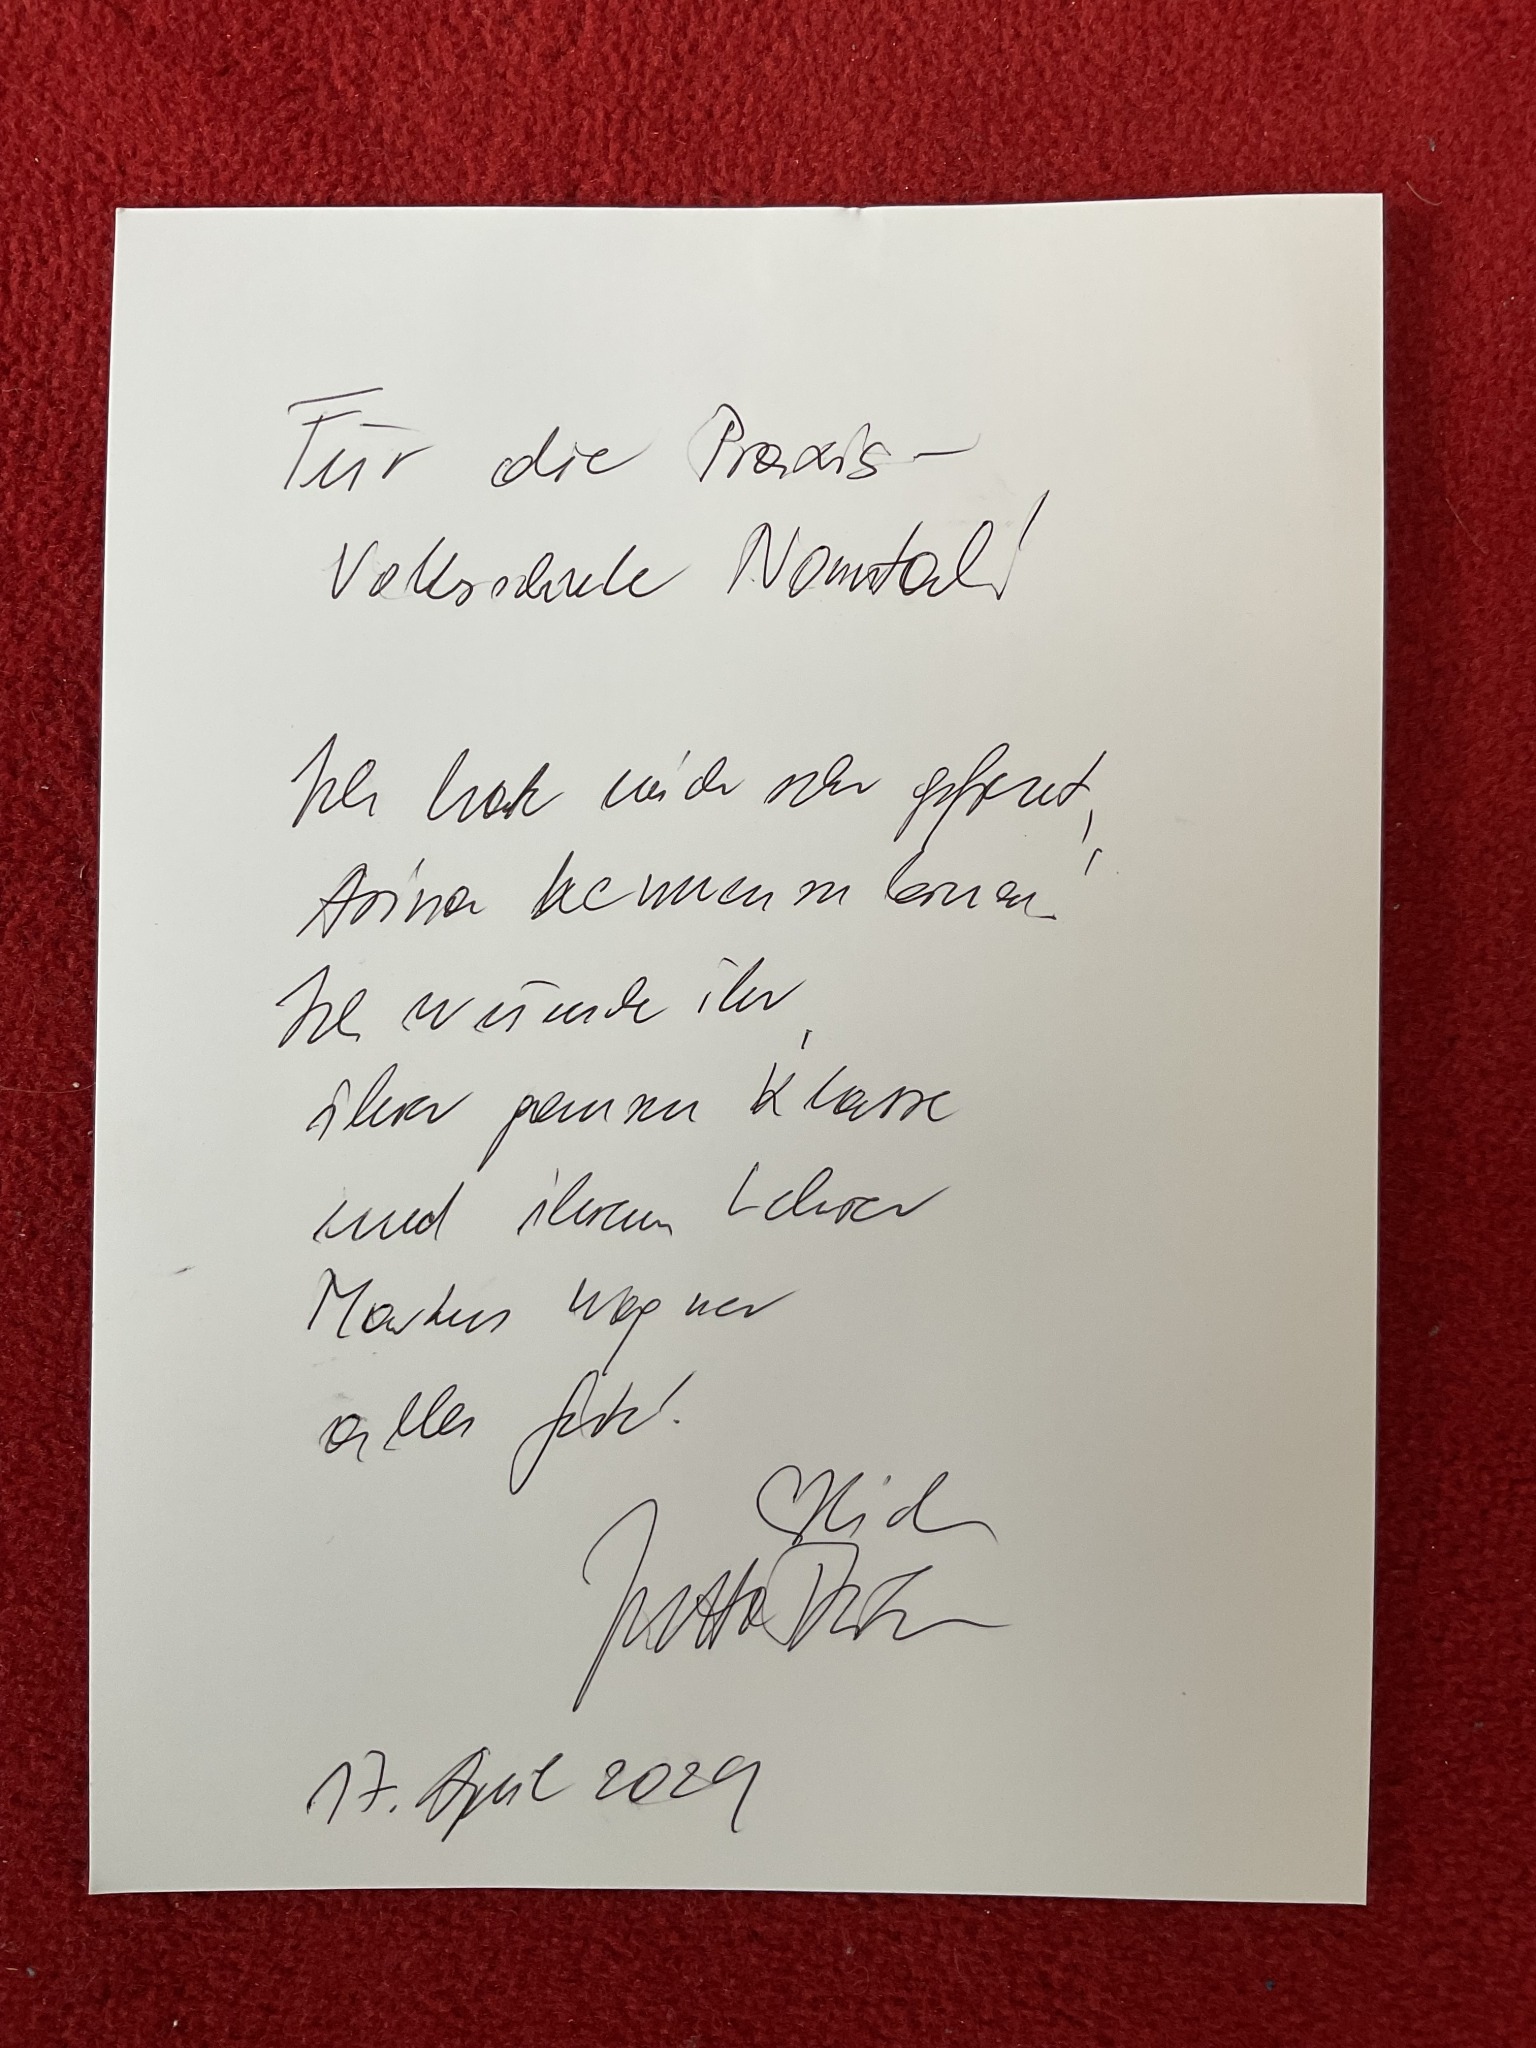 Für die Praxis-
Volksschule Nonntal!
Ich habe mich sehr gefreut,
Arina kennenzulernen!
Ich wünsche ihr,
ihrer ganzen Klasse
und ihrem Lehrer
Markus Wagner
alles Gute!
Jutta
17. April 2024